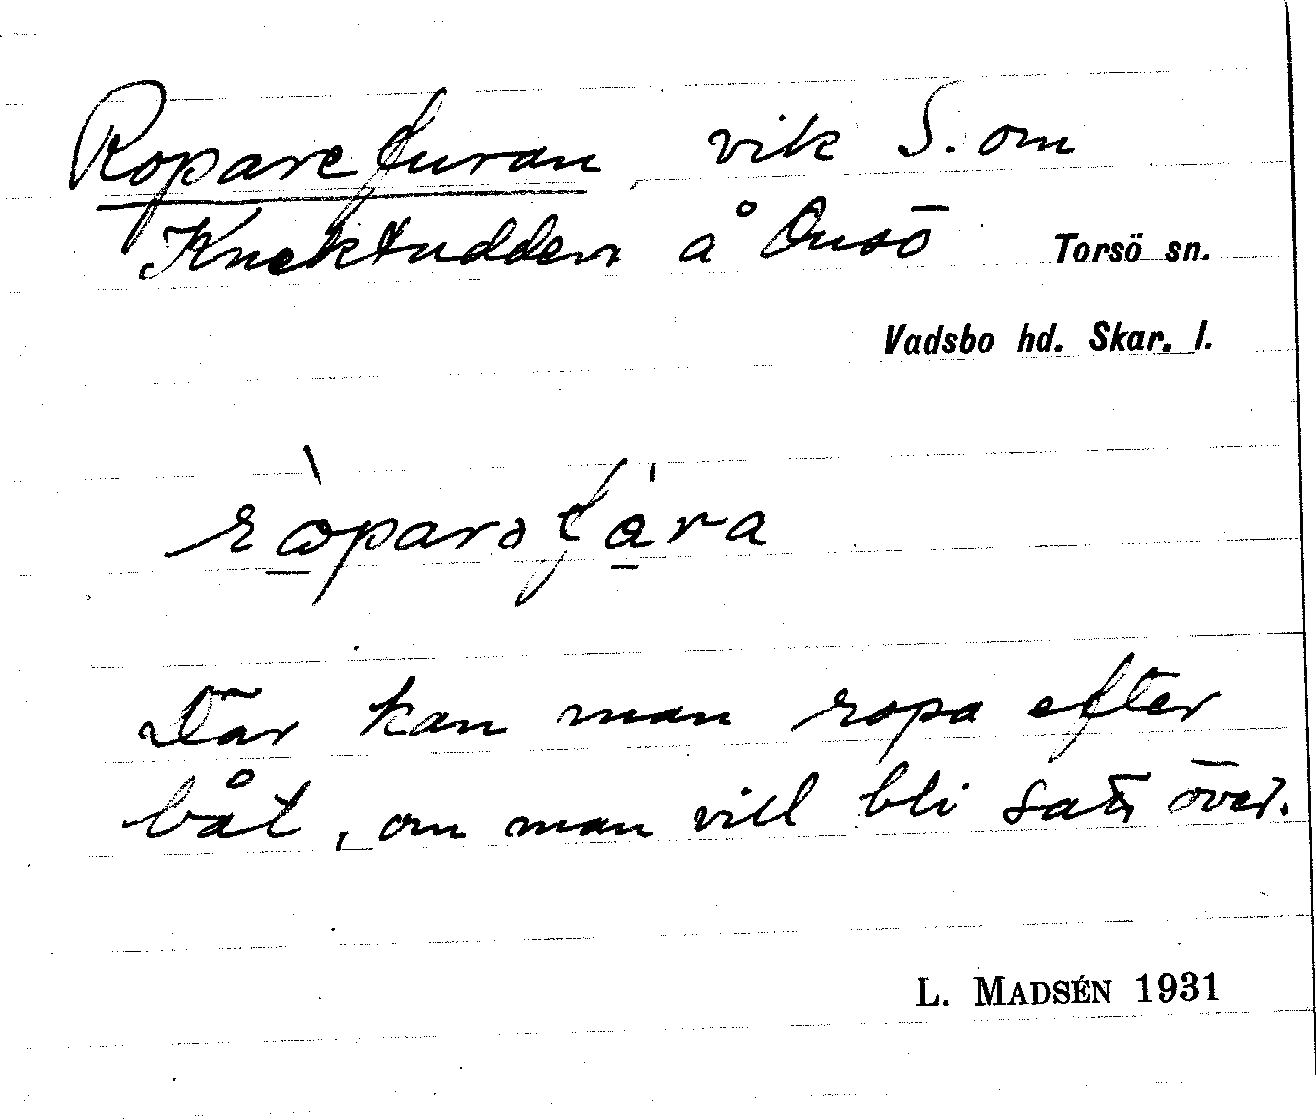 Roparefuran, vik S. om
Knektudden å Onsö Torsö sn.
Vadsbo hd. Skar. l.
Där kan man ropa efter
båt, om man vill bli satt över.
L. MADSÉN 1931